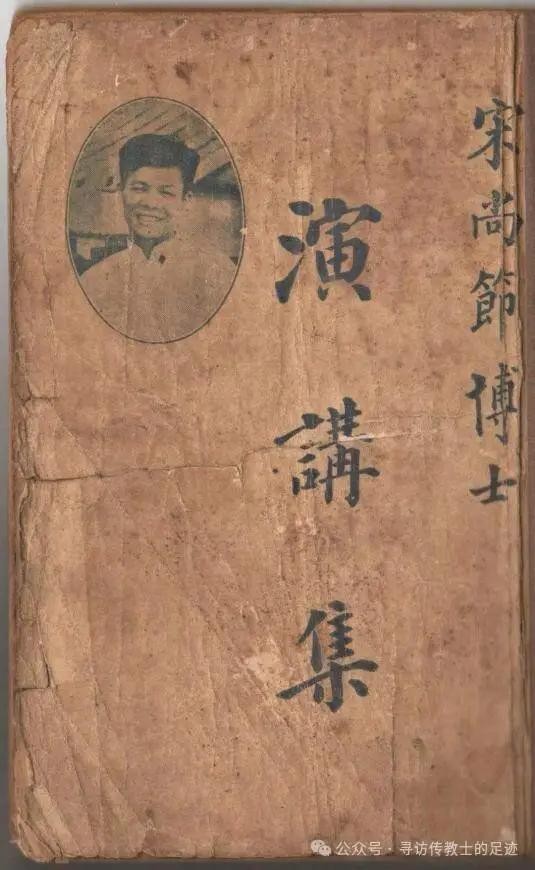 宋尚節博士
演講集
公众号·寻访传教士的足迹